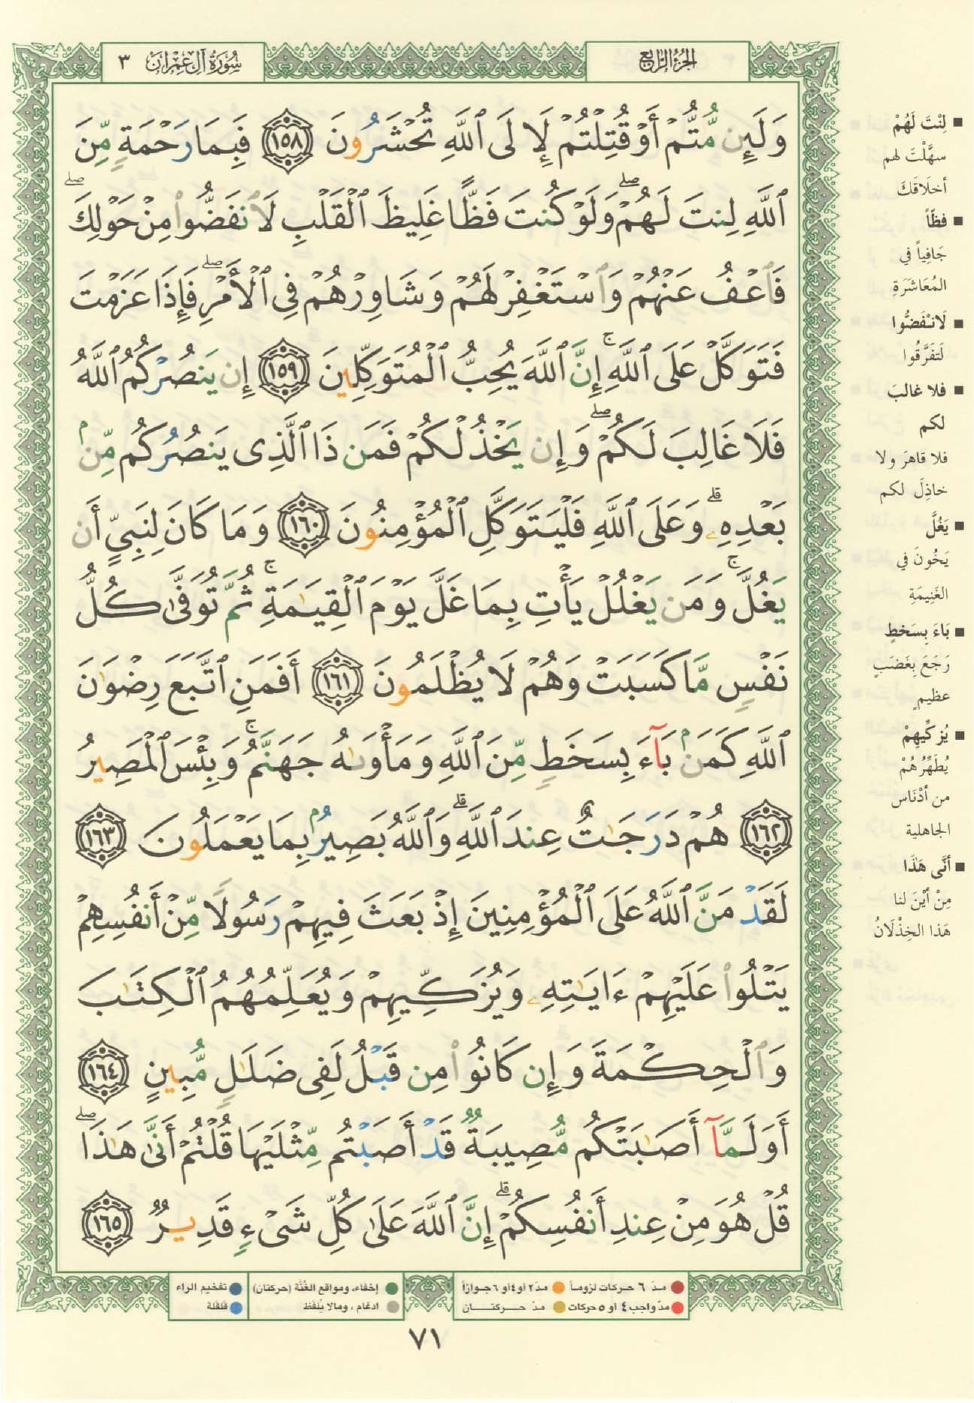 سُورَةُ آلِ عِمْرَان ٣
الجُزْءُ الرَّابِع
وَلَئِن مُّتُّمْ أَوْ قُتِلْتُمْ لَإِلَى ٱللَّهِ تُحْشَرُونَ ١٥٨ فَبِمَا رَحْمَةٍ مِّنَ
ٱللَّهِ لِنتَ لَهُمْ ۖ وَلَوْ كُنتَ فَظًّا غَلِيظَ ٱلْقَلْبِ لَٱنفَضُّوا۟ مِنْ حَوْلِكَ ۖ
فَٱعْفُ عَنْهُمْ وَٱسْتَغْفِرْ لَهُمْ وَشَاوِرْهُمْ فِى ٱلْأَمْرِ ۖ فَإِذَا عَزَمْتَ
فَتَوَكَّلْ عَلَى ٱللَّهِ ۚ إِنَّ ٱللَّهَ يُحِبُّ ٱلْمُتَوَكِّلِينَ ١٥٩ إِن يَنصُرْكُمُ ٱللَّهُ
فَلَا غَالِبَ لَكُمْ ۖ وَإِن يَخْذُلْكُمْ فَمَن ذَا ٱلَّذِى يَنصُرُكُم مِّنۢ
بَعْدِهِۦ ۗ وَعَلَى ٱللَّهِ فَلْيَتَوَكَّلِ ٱلْمُؤْمِنُونَ ١٦٠ وَمَا كَانَ لِنَبِىٍّ أَن
يَغُلَّ ۚ وَمَن يَغْلُلْ يَأْتِ بِمَا غَلَّ يَوْمَ ٱلْقِيَـٰمَةِ ۚ ثُمَّ تُوَفَّىٰ كُلُّ
نَفْسٍ مَّا كَسَبَتْ وَهُمْ لَا يُظْلَمُونَ ١٦١ أَفَمَنِ ٱتَّبَعَ رِضْوَٰنَ
ٱللَّهِ كَمَنۢ بَآءَ بِسَخَطٍ مِّنَ ٱللَّهِ وَمَأْوَىٰهُ جَهَنَّمُ ۚ وَبِئْسَ ٱلْمَصِيرُ
١٦٢ هُمْ دَرَجَـٰتٌ عِندَ ٱللَّهِ ۗ وَٱللَّهُ بَصِيرٌۢ بِمَا يَعْمَلُونَ ١٦٣
لَقَدْ مَنَّ ٱللَّهُ عَلَى ٱلْمُؤْمِنِينَ إِذْ بَعَثَ فِيهِمْ رَسُولًا مِّنْ أَنفُسِهِمْ
يَتْلُوا۟ عَلَيْهِمْ ءَايَـٰتِهِۦ وَيُزَكِّيهِمْ وَيُعَلِّمُهُمُ ٱلْكِتَـٰبَ
وَٱلْحِكْمَةَ وَإِن كَانُوا۟ مِن قَبْلُ لَفِى ضَلَـٰلٍ مُّبِينٍ ١٦٤
أَوَلَمَّآ أَصَـٰبَتْكُم مُّصِيبَةٌ قَدْ أَصَبْتُم مِّثْلَيْهَا قُلْتُمْ أَنَّىٰ هَـٰذَا ۖ
قُلْ هُوَ مِنْ عِندِ أَنفُسِكُمْ ۗ إِنَّ ٱللَّهَ عَلَىٰ كُلِّ شَىْءٍ قَدِيرٌ ١٦٥
■ لِنْتَ لَهُمْ
سهَّلْتَ لهم
أخلاقَكَ
■ فظًّا
جَافِياً في
المُعَاشَرَةِ
■ لَانْفَضُّوا
لَتفَرَّقُوا
■ فلا غالبَ
لكم
فلا قاهرَ ولا
خاذِلَ لكم
■ يَغُلَّ
يَخُونَ في
الغَنِيمَةِ
■ بَاءَ بسَخطٍ
رَجَعَ بِغَضَبٍ
عظيمٍ
■ يُزَكِّيهِمْ
يُطَهِّرُهُمْ
من أدْنَاس
الجاهلية
■ أنَّى هَذَا
مِنْ أيْنَ لنا
هَذا الخِذْلَانُ
مدّ ٦ حركات لزوماً مدّ ٢ أو ٤ أو ٦ جوازاً
مدّ واجب ٤ أو ٥ حركات مدّ حركتان
إخفاء، ومواقع الغُنَّة (حركتان) تفخيم الراء
ادغام، ومالا يُلفَظ قلقلة
٧١